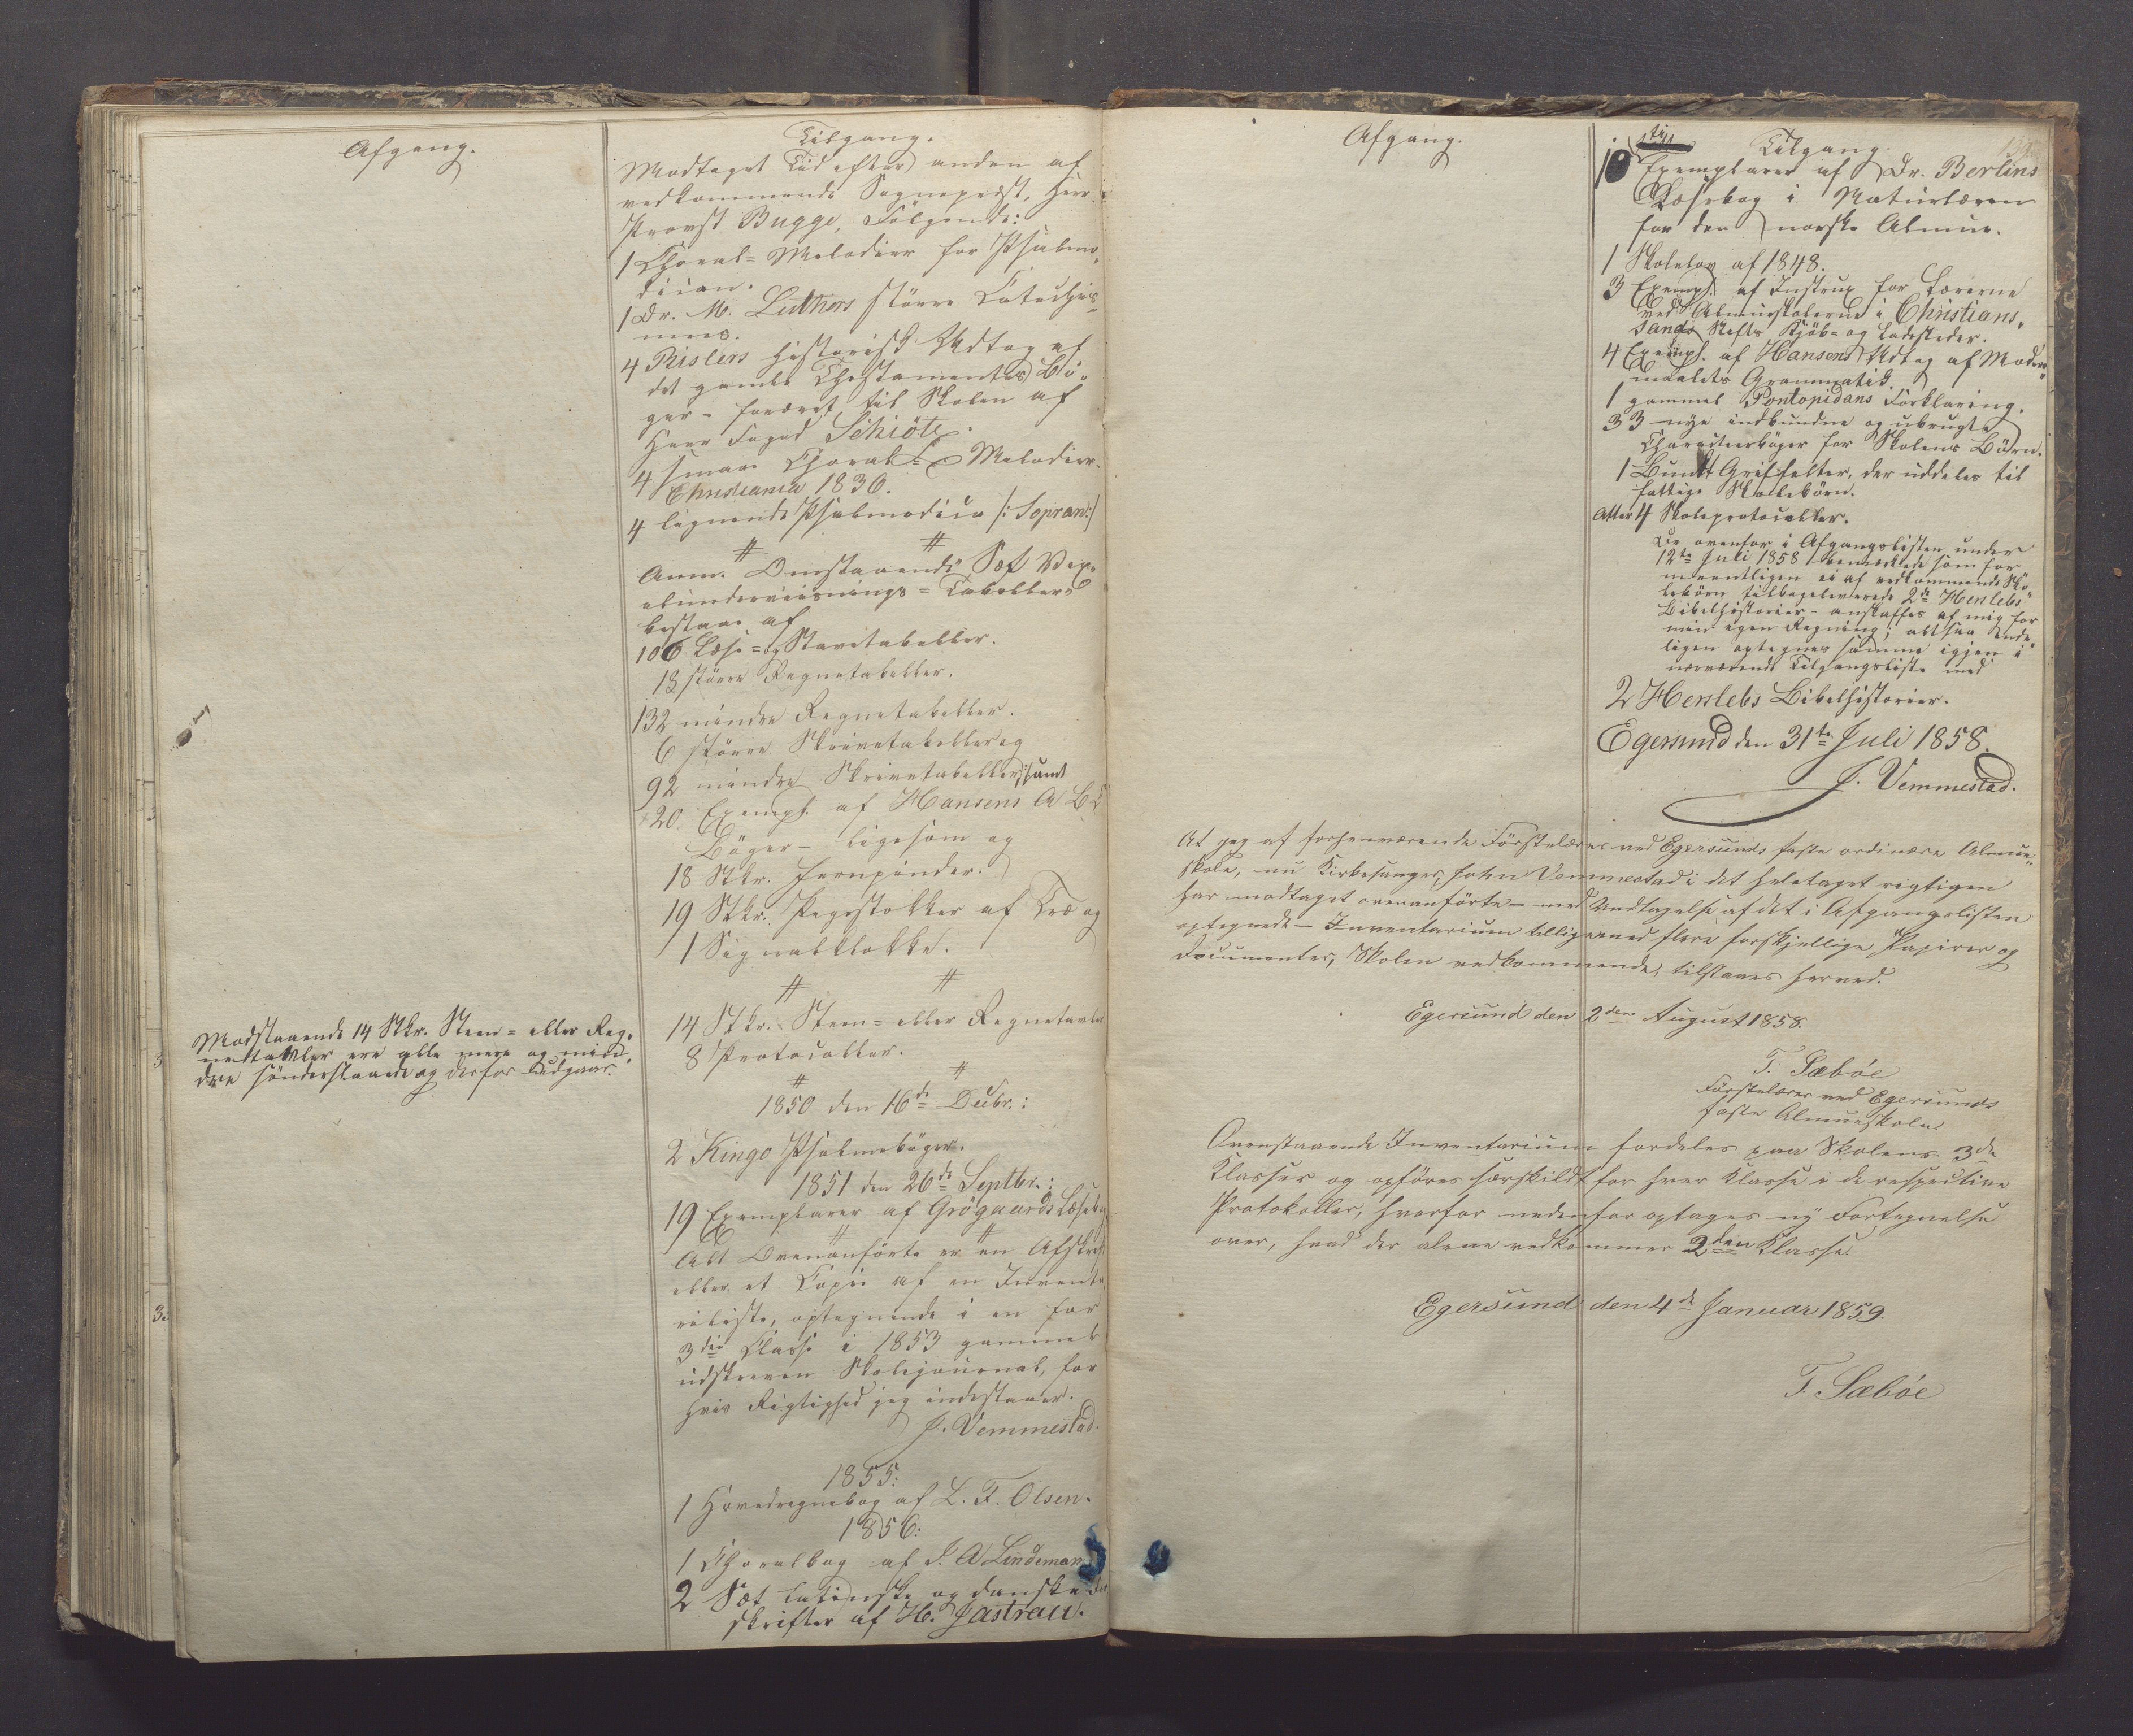 Afgang.
Tilgang.
Modtaget Tid efter anden af
vedkommende Sognepræst, Herr
Provst Bugge, Følgende:
1 Choral-Melodier for Psalmo-
dicon.
1 Dr. M. Luthers større Catechis-
mus.
4 Rislers historisk Udtog af
det gamle Thestamentes Bö-
ger - foræret til Skolen af
Herr Foged Schiøtz.
4 smaae Choral-Melodier.
Christiania 1836.
4 lignende Psalmodicon /: Sopran :/
# #
Anm. Omstaaende Sæt Vex-
elunderviisnings-Tabeller
bestaae af
106 Læse- og Stavetabeller.
13 större Regnetabeller.
132 mindre Regnetabeller.
6 större Skrivetabeller og
92 mindre Skrivetabeller; samt
20 Exempl. af Hansens A B C
Böger - ligesom og
18 Stkr. Jernpinder.
19 Stkr. Pegestokker af Træ og
1 Signalklokke.
# #
14 Stkr. Steen- eller Regnetavler
8 Protocoller.
# #
Modstaaende 14 Stkr. Steen- eller Reg-
netavler ere alle mere og min-
dre sönderslaaede og derfor udgaar.
1850 den 16de Decbr.:
2 Kingo Psalmebøger.
1851 den 26de Septbr.:
19 Exemplarer af Grögaards Læsebog
# #
Alt Ovenanförte er en Afskrift
eller et Copie af en Invento-
rieliste, optegnende i en for
3die Classe i 1853 gammel
udskreven Skolejournal, for
hvis Rigtighed jeg indestaaer.
J. Vemmestad.
1855:
1 Hovedregnebog af L. F. Olsen.
1856:
1 Choralbog af O. A Lindeman
2 Sæt latinske og danske For-
skrifter af H. Jastrau.
Afgang.
Tilgang.
10 Exemplarer af Dr. Berlins
Læsebog i Naturlæren
for den norske Almue.
1 Skolelov af 1848.
3 Exempl. af Instrux for Lærerne
ved Almueskolerne i Christians-
sands Stifts Kjöb- og Ladesteder.
4 Exempl. af Hansens Udtog af Moders-
maalets Grammatik.
1 gammel Pontopidans Forklaring.
33 nye indbundne og ubrugte
Charactererböger for Skolens Börn.
1 Bundt Griffelter, der uddeles til
fattige Skolebörn.
Atter 4 Skoleprotocoller.
De ovenfor i Afgangslisten under
12te Juli 1858 bemærkede som for-
mentligen ei af vedkommende Sko-
lebörn tilbageleverede 2de Herslebs
Bibelhistorier - anskaffes af mig for
min egen Regning; altsaa ende-
ligen optegnes samme igjen i
nærværende Tilgangsliste med
2 Herslebs Bibelhistorier.
Egersund den 31te Juli 1858.
J. Vemmestad.
At jeg af forhenværende Förstelærer ved Egersunds faste ordinære Almue-
skole, nu Kirkesanger, John Vemmestad i det Heletaget rigtigen
har modtaget ovenanförte - med Undtagelse af det i Afgangslisten
optegnede - Inventarium tilligemed flere forskjellige Papirer og
Documenter, Skolen vedkommende, tilstaaes herved.
Egersund den 2den August 1858.
T. Sæbøe
Förstelærer ved Egersunds
faste Almueskole
Ovenstaaende Inventarium fordeles paa Skolens 3de
Klasser og opföres særskildt for hver Klasse i de respective
Protokoller, hvorfor nedenfor optages ny Fortegnelse
over, hvad der alene vedkommer 2den Klasse.
Egersund den 4de Januar 1859.
T. Sæbøe